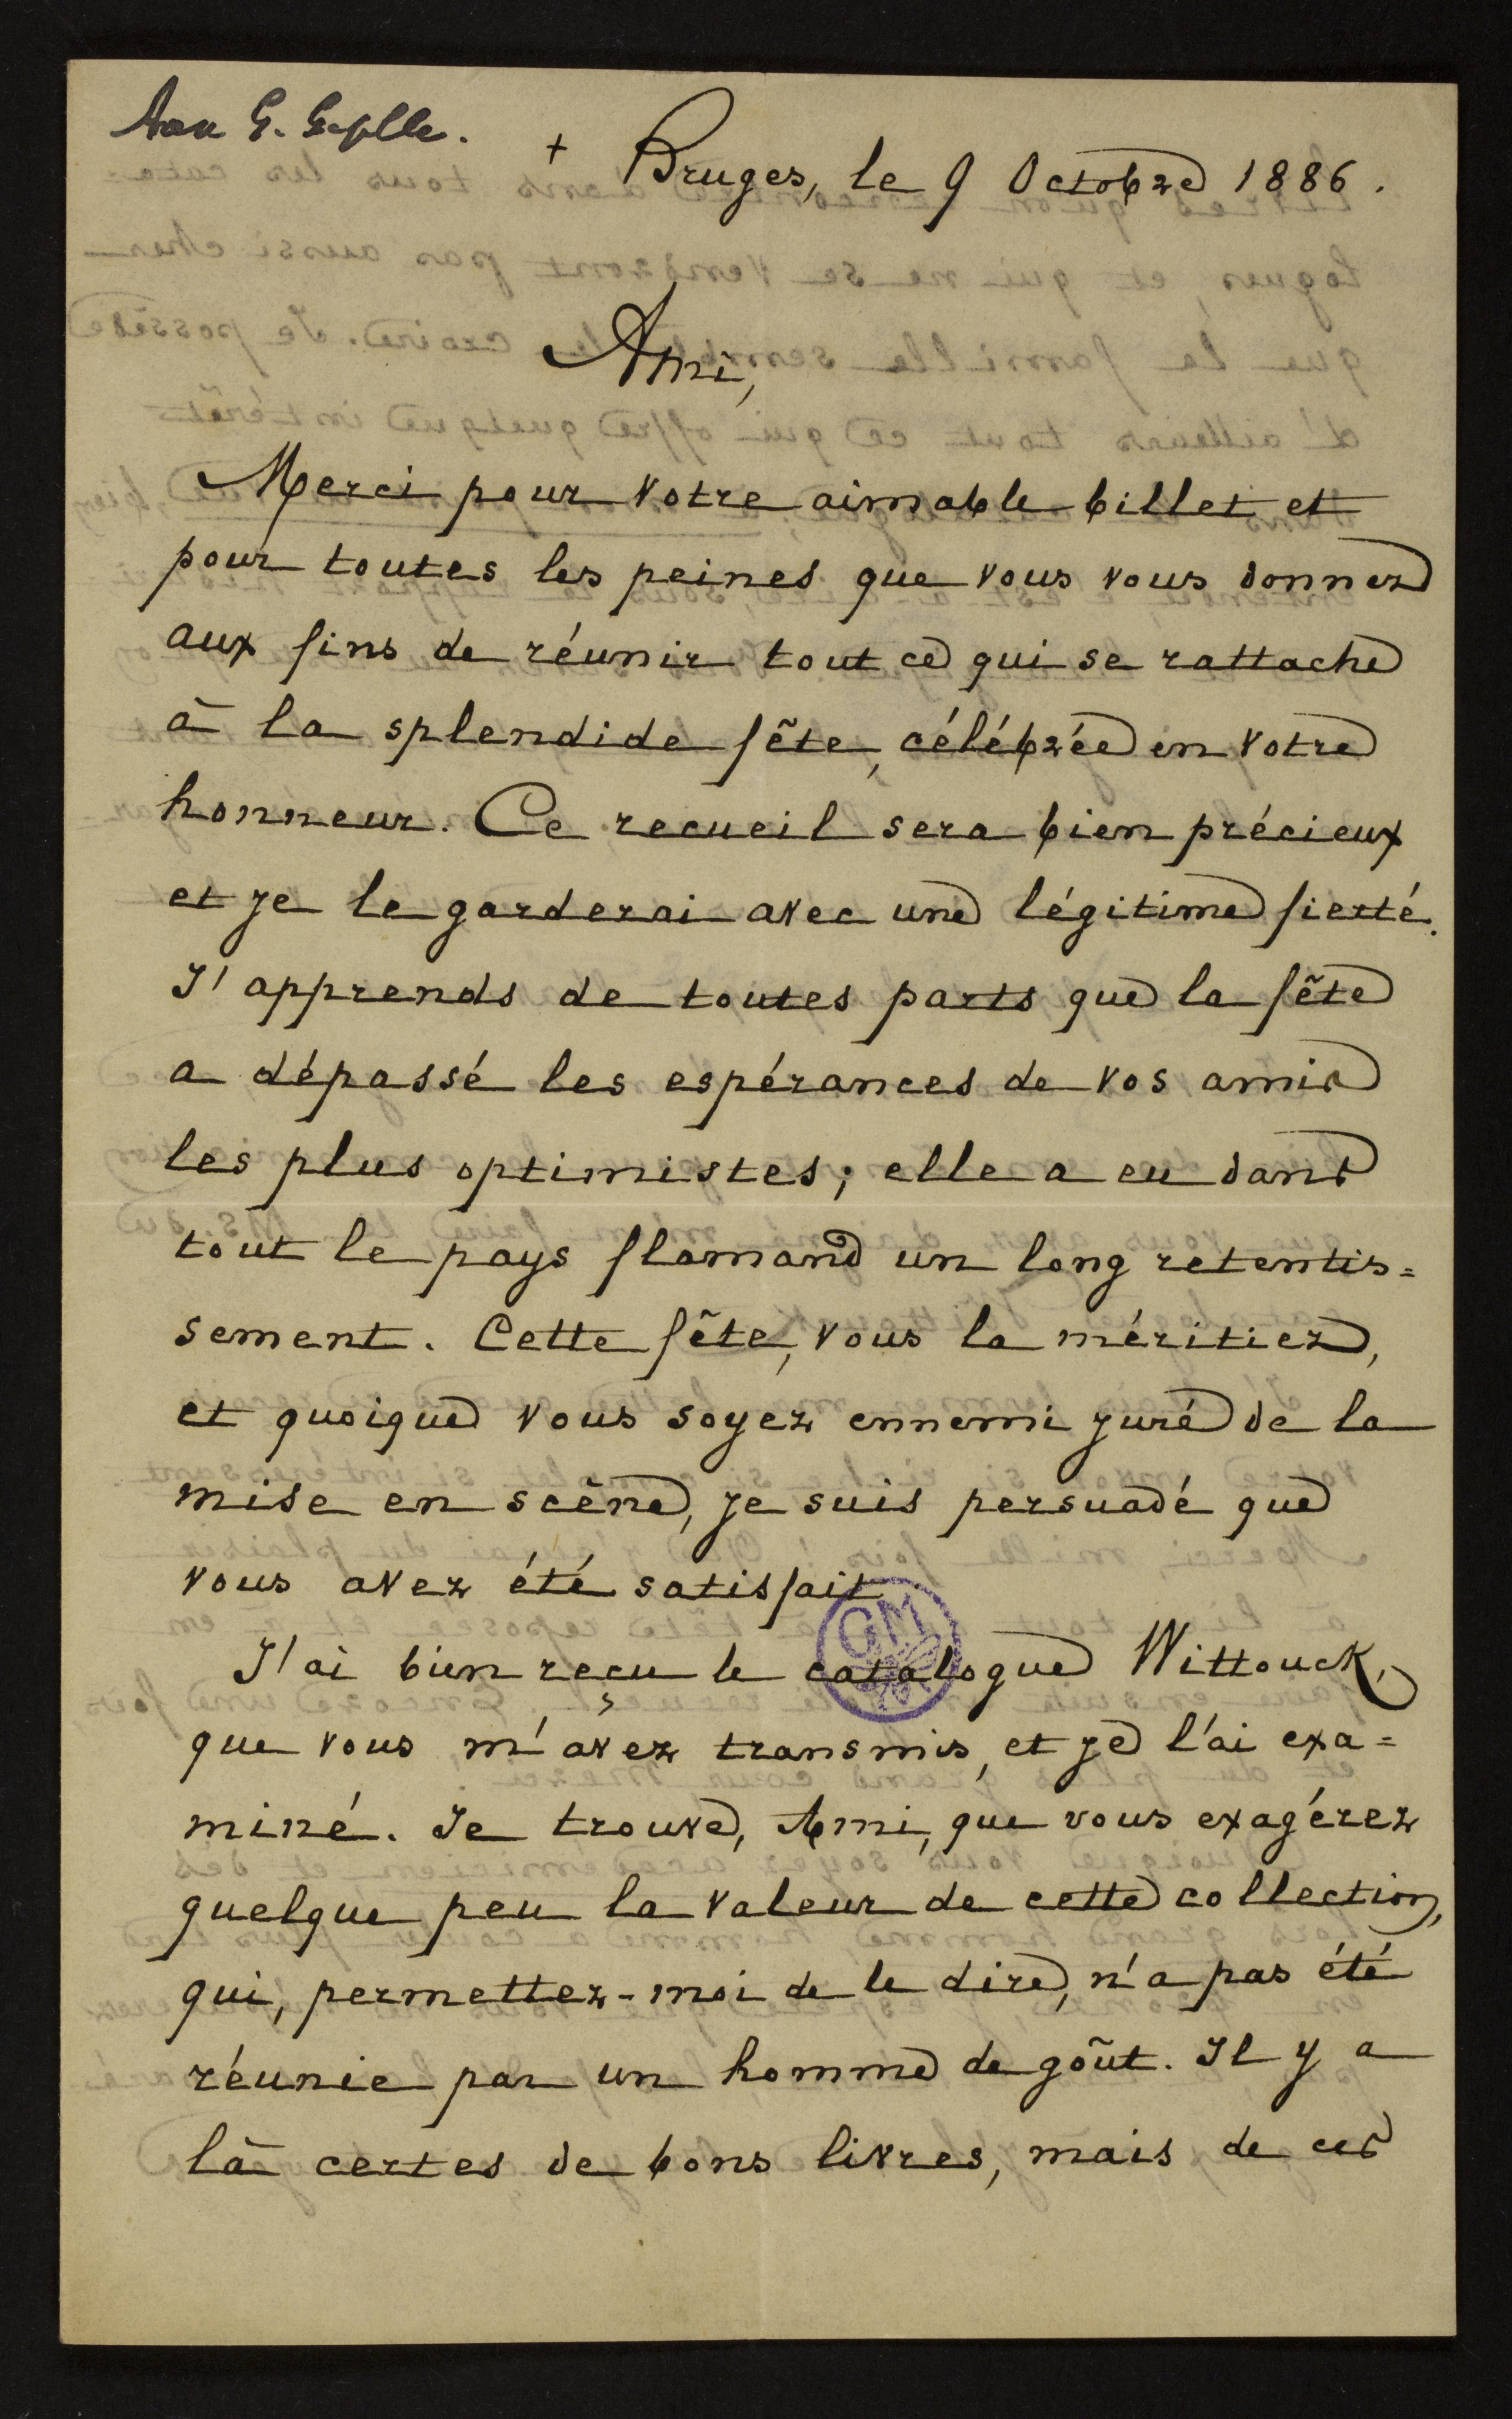 Aan G. Gezelle.
+ Bruges, le 9 Octobre 1886.
Ami,
Merci pour votre aimable billet et
pour toutes les peines que vous vous donnez
aux fins de réunir tout ce qui se rattache
à la splendide fête, célébrée en votre
honneur. Ce recueil sera bien précieux
et je le garderai avec une légitime fierté.
J'apprends de toutes parts que la fête
a dépassé les espérances de vos amis
les plus optimistes; elle a eu dans
tout le pays flamand un long retentis=
sement. Cette fête, vous la méritiez,
et quoique vous soyez ennemi juré de la
mise en scène, je suis persuadé que
vous avez été satisfait
J'ai bien reçu le catalogue Wittouck,
que vous m'avez transmis, et je l'ai exa=
miné. Je trouve, Ami, que vous exagérez
quelque peu la valeur de cette collection,
qui, permettez-moi de le dire, n'a pas été
réunie par un homme de goût. Il y a
là certes de bons livres, mais de ces
GM